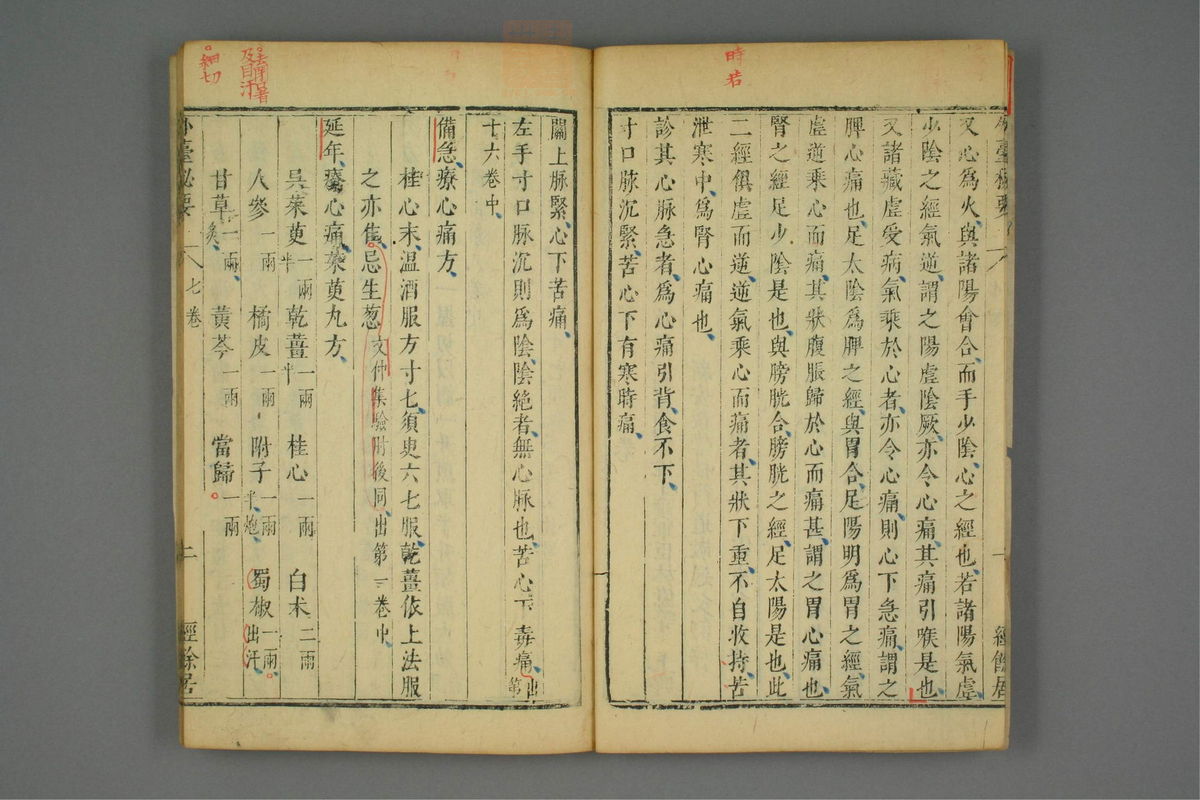 時若
又心爲火與諸陽會合而手少陰心之經也若諸陽氣虛
少陰之經氣逆謂之陽虛陰厥亦令心痛其痛引喉是也
又諸藏虛受病氣乘於心者亦令心痛則心下急痛謂之
脾心痛也足太陰爲脾之經與胃合足陽明爲胃之經氣
虛逆乘心而痛其狀腹脹歸於心而痛甚謂之胃心痛也
腎之經足少陰是也與膀胱合膀胱之經足太陽是也此
二經俱虛而逆逆氣乘心而痛者其狀下重不自收持苦
泄寒中爲腎心痛也
診其心脉急者爲心痛引背食不下
寸口脉沉緊苦心下有寒時痛
關上脉緊心下苦痛
左手寸口脉沉則爲陰陰絶者無心脉也苦心下毒痛出第
十六卷中
備急療心痛方
桂心末温酒服方寸匕須臾六七服乾薑依上法服
之亦佳忌生葱文仲集驗肘後同出第一卷中
延年療心痛茱萸丸方
吳茱萸一兩半 乾薑一兩半 桂心一兩 白朮二兩
人參一兩 橘皮一兩 附子一兩半炮 蜀椒一兩出汗
甘草一兩炙 黃芩一兩 當歸一兩
外臺秘要 七卷 二 經餘居
細切